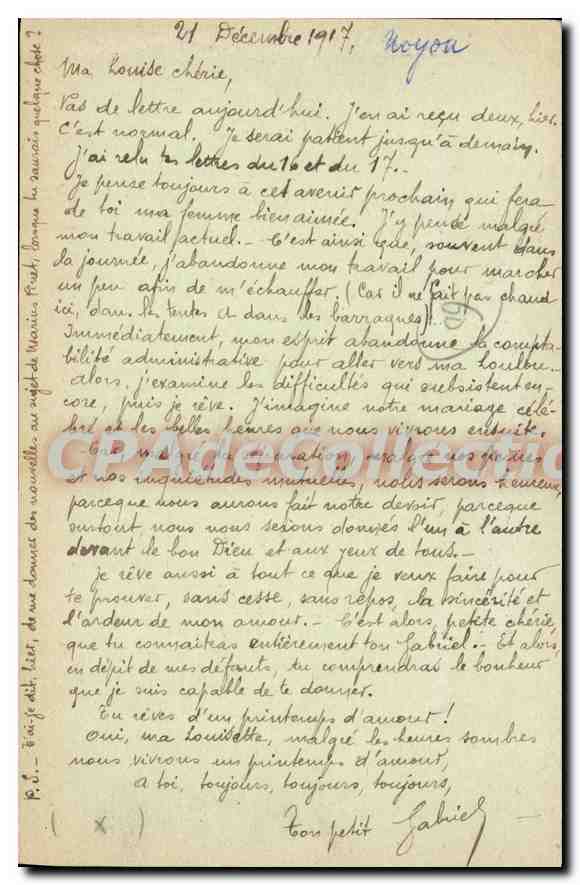 21 Décembre 1917, Noyon
Ma Louise chérie,
Pas de lettre aujourd'hui. J'en ai reçu deux, hier.
C'est normal. Je serai patient jusqu'à demain.
J'ai relu tes lettres du 16 et du 17.-
Je pense toujours à cet avenir prochain qui fera
de toi ma femme bien aimée. J'y pense malgré
mon travail actuel.- C'est ainsi que, souvent dans
la journée, j'abandonne mon travail pour marcher
un peu afin de m'échauffer. (Car il ne fait pas chaud
ici, dans les tentes et dans les barraques)!...
Immédiatement, mon esprit abandonne la compta-
bilité administrative pour aller vers ma Loulou...
Alors, j'examine les difficultés qui subsistent en-
core, puis je rêve. J'imagine notre mariage célé-
bré et les belles heures que nous vivrons ensuite.
malgré la séparation, malgré nos peines
et nos inquiétudes mutuelles, nous serons heureux,
parceque nous aurons fait notre devoir, parceque
surtout nous nous serons donnés l'un à l'autre
devant le bon Dieu et aux yeux de tous.-
Je rêve aussi à tout ce que je veux faire pour
te prouver, sans cesse, sans repos, la sincérité et
l'ardeur de mon amour.- C'est alors, petite chérie,
que tu connaitras entièrement ton Gabriel.- Et alors,
en dépit de mes défauts, tu comprendras le bonheur
que je suis capable de te donner.
Tu rêves d'un printemps d'amour!
Oui, ma Louisette, malgré les heures sombres
nous vivrons un printemps d'amour,
A toi, toujours, toujours, toujours,
Ton petit Gabriel
( x )
P.S.- T'ai-je dit, hier, de me donner des nouvelles au sujet de Marius Piret, lorsque tu saurais quelque chose?
CPAdeCollection